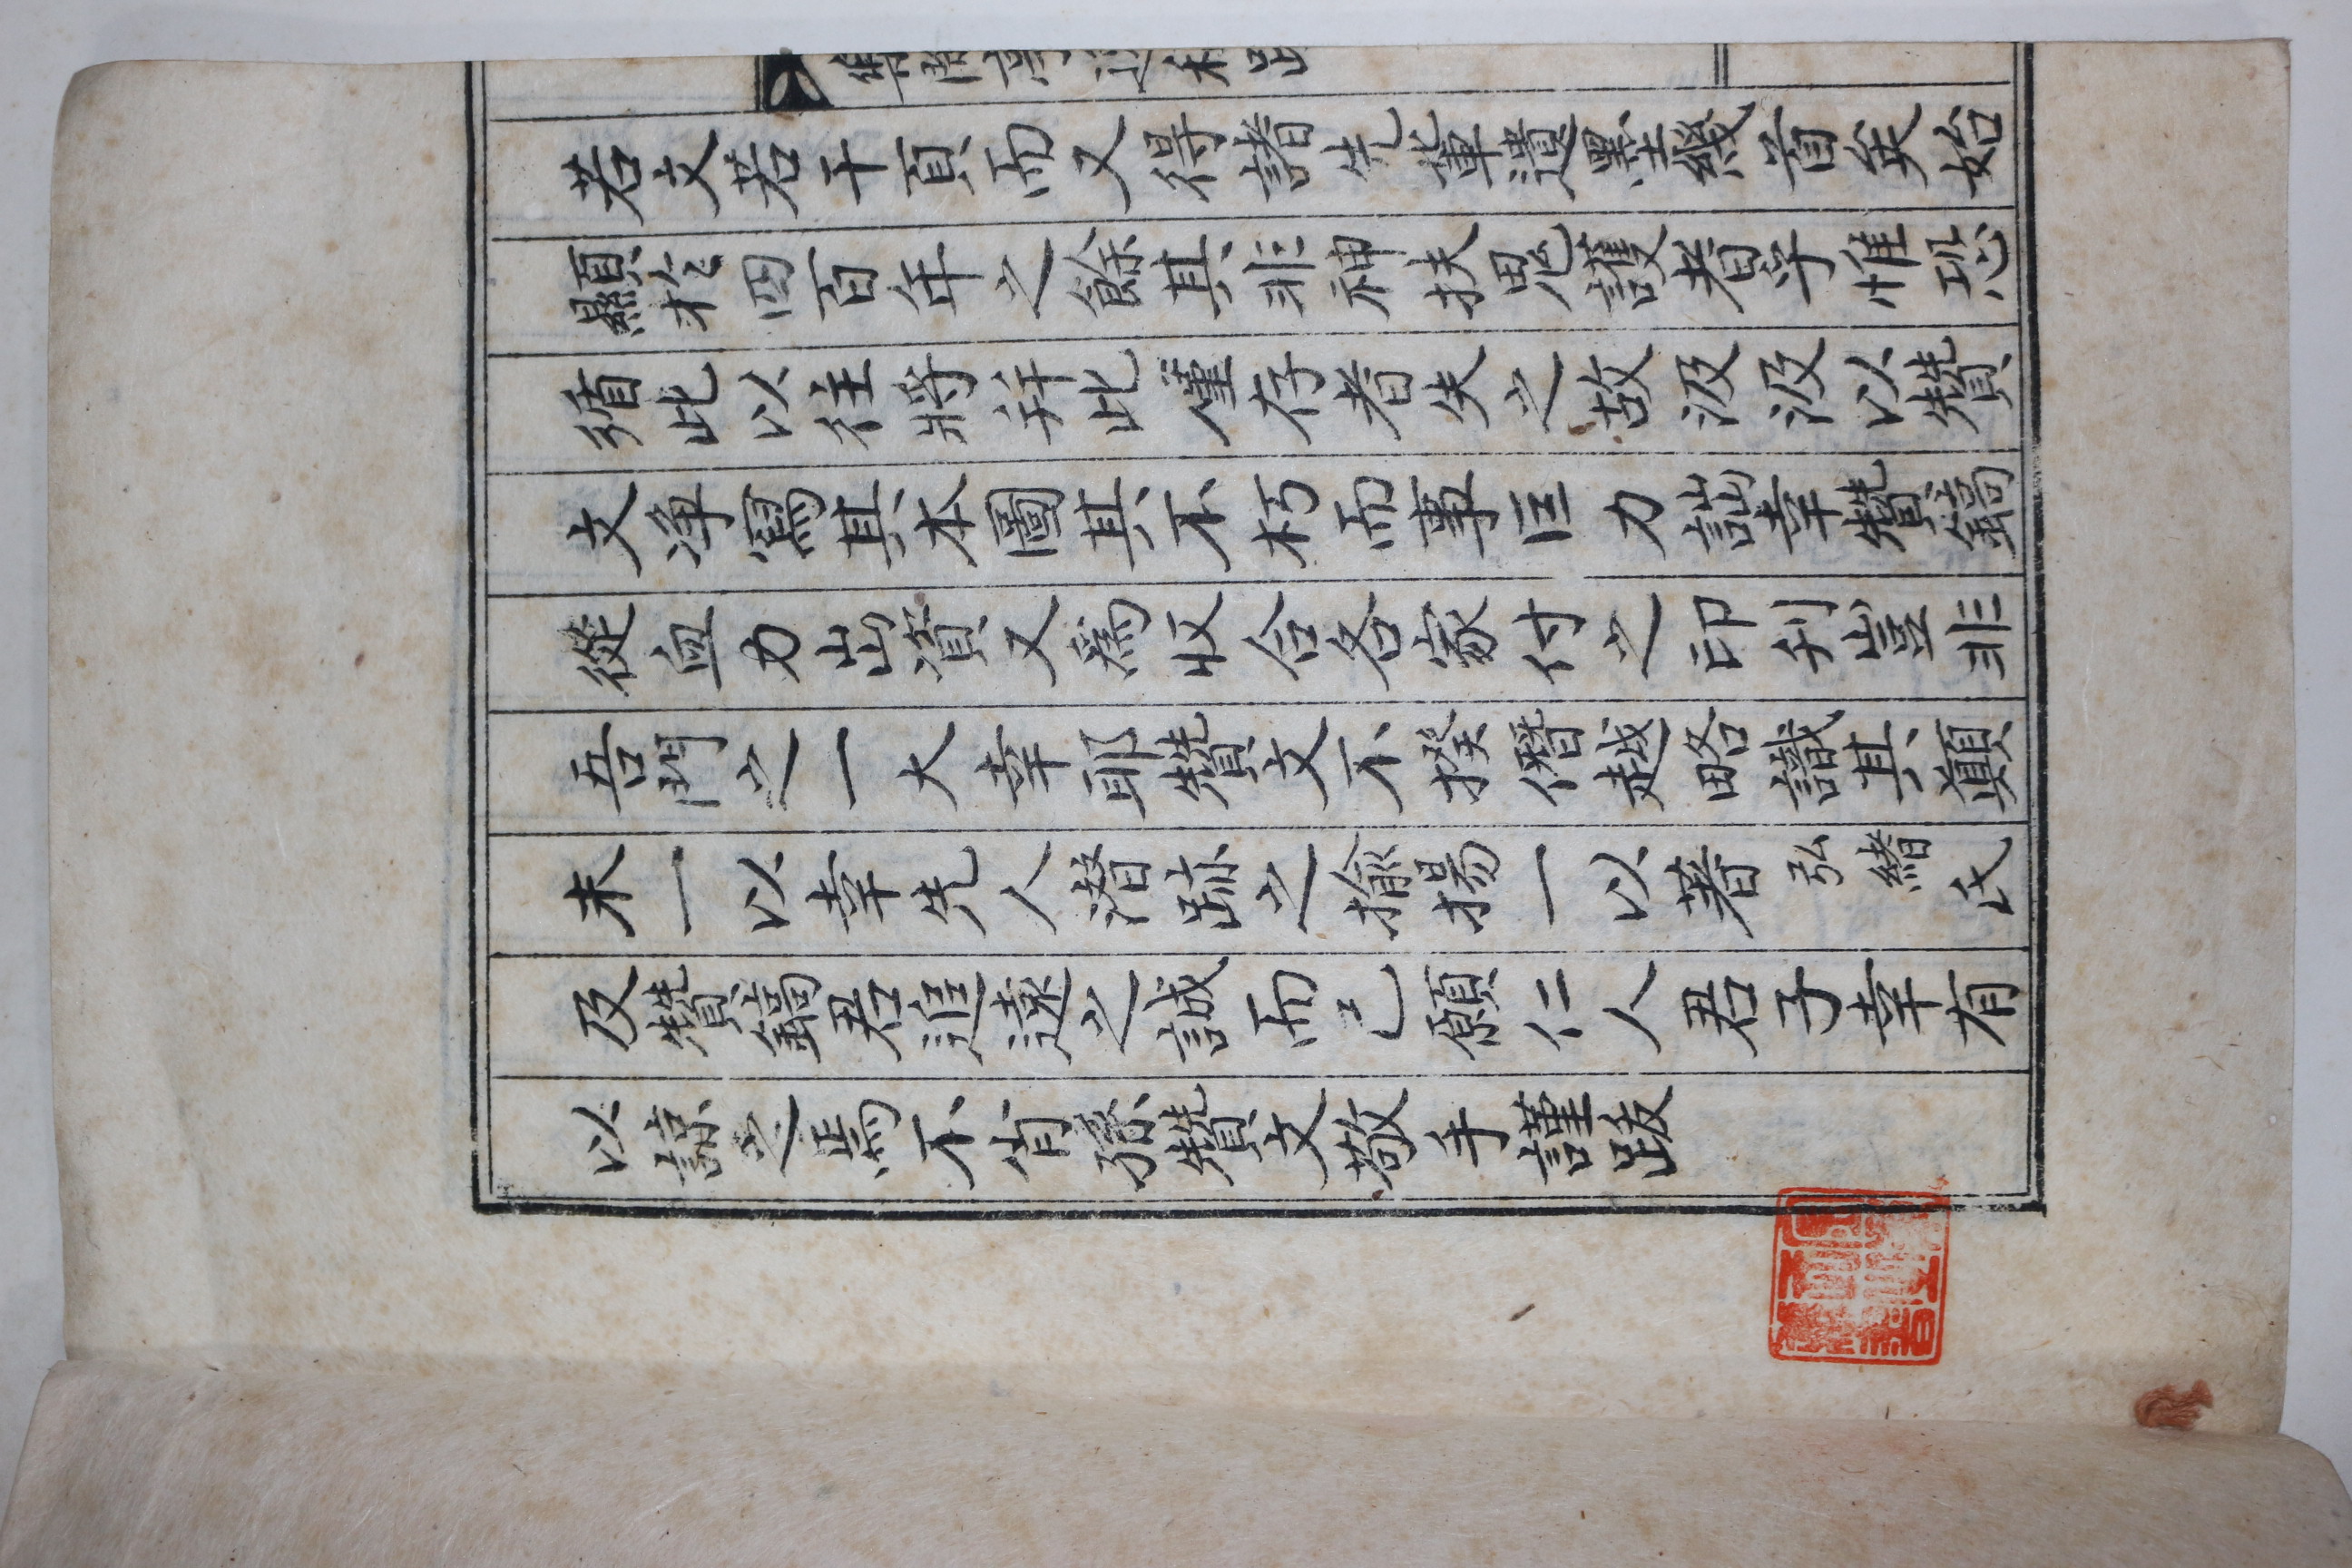 若文若干頁而又得諸先輩遺墨幾首矣始
顯於四百年之餘其非神扶鬼護者乎惟恐
循此以往將并此僅存者失之故汲汲以贊
文净寫其本圖其不朽而事巨力詘幸贊鎬
從血力出資又爲収合各家付之印刋豈非
吾門之一大幸耶贊文不揆僭越略識其顚
末一以幸先人潛跡之揄揚一以著弘緖氏
及贊鎬君追遠之誠而已願仁人君子幸有
以諒之焉不肖孫贊文敬手謹跋